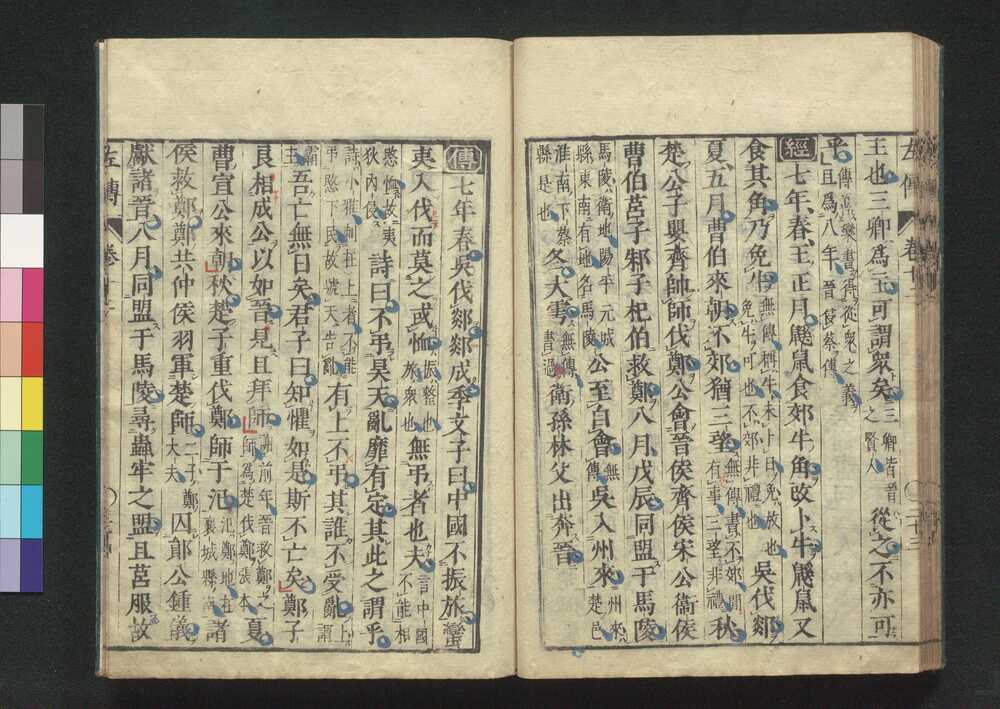 主也三卿爲主可謂衆矣三卿皆晉之賢人從之不亦可
乎傳善欒書得從衆之義且爲八年晉侵蔡傳
經七年春王正月鼷鼠食郊牛角改卜牛鼷鼠又
食其角乃免牛無傳稱牛未卜日免放也免牛可也不郊非禮也吳伐郯
夏五月曹伯來朝不郊猶三望無傳書不郊間有事三望非禮秋
楚公子嬰齊帥師伐鄭公會晉侯齊侯宋公衞侯
曹伯莒子邾子杞伯救鄭八月戊辰同盟于馬陵
馬陵衞地陽平元城縣東南有地名馬陵公至自會無傳吳入州來州來楚邑
淮南下蔡縣是也冬大雩無傳書過衞孫林父出奔晉
傳七年春吳伐郯郯成季文子曰中國不振旅蠻
夷入伐而莫之或恤振整也旅衆也無弔者也夫言中國不能相
愍恤故夷狄内侵詩曰不弔昊天亂靡有定其此之謂乎
詩小雅刺在上者不能弔愍下民故號天告亂有上不弔其誰不受亂上謂
霸主吾亡無日矣君子曰知懼如是斯不亡矣鄭子
良相成公以如晉見且拜師謝前年晉救鄭之師爲楚伐鄭張本夏
曹宣公來朝秋楚子重伐鄭師于氾氾鄭地在襄城縣南諸
侯救鄭鄭共仲侯羽軍楚師二子鄭大夫囚鄖公鍾儀
獻諸晉八月同盟于馬陵尋蟲牢之盟且莒服故
左傳 卷十二